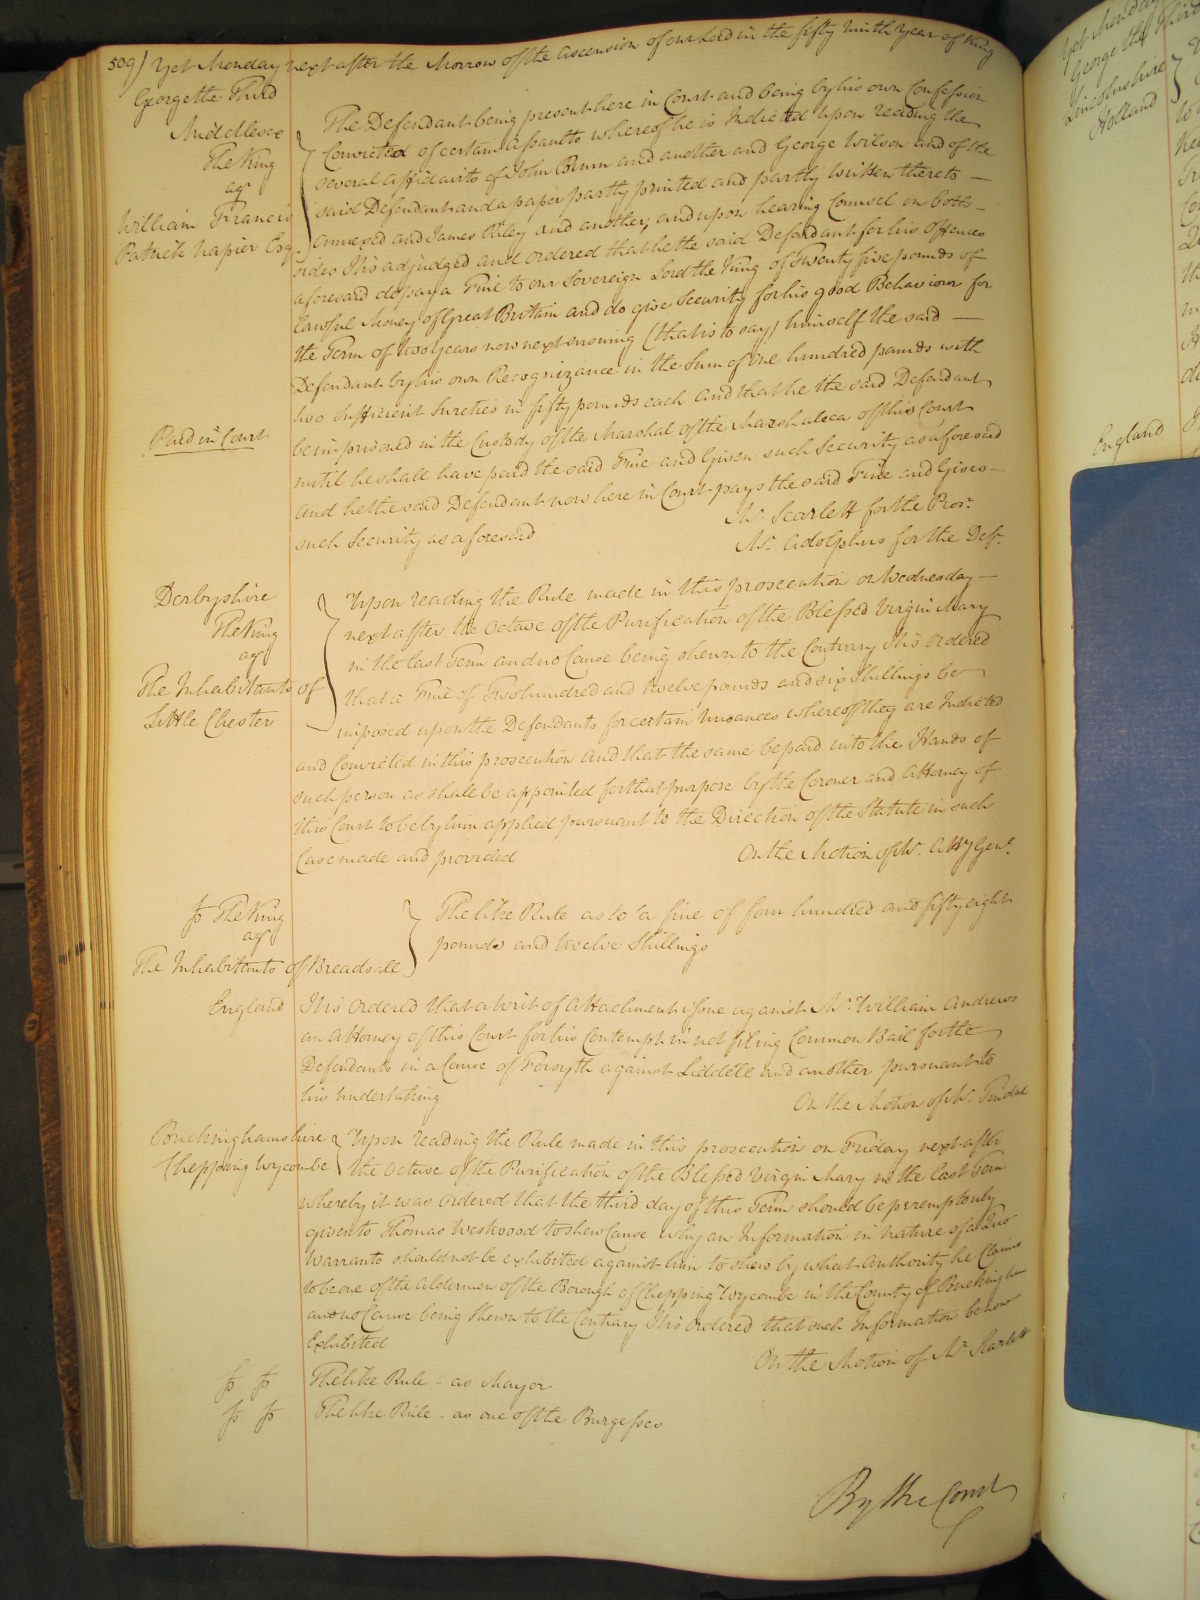 509) Yet Monday next after the Morrow of the Ascension of our Lord in the fifty Ninth Year of King
George the Third
Middlesex
The King
agt
William Francis
Patrick Napier Esq
The Defendant being present here in Court and being by his own Confession
Convicted of certain assaults whereof he is Indicted upon reading the
several affidavits of John Brum and another and George Wilson and of the
said Defendant and a paper partly printed and partly written thereto —
annexed and James Riley and another, and upon hearing Counsel on both —
sides It is adjudged and ordered that he the said Defendant for his Offences
aforesaid do pay a Fine to our Sovereign Lord the King of Twenty five pounds of
lawful Money of Great Britain and do give Security for his good Behaviour for
the Term of two Years now next ensuing (that is to say) himself the said —
Defendant by his own Recognizance in the Sum of one hundred pounds with
two sufficient Sureties in fifty pounds each And that he the said Defendant
be imprisoned in the Custody of the Marshal of the Marshalsea of this Court
until he shall have paid the said Fine and Given such Security as aforesaid
And he the said Defendant now here in Court pays the said Fine and Gives —
such Security as aforesaid
Paid in Court
Mr. Scarlett for the Prosr.
Mr. Adolphus for the Deft.
Derbyshire
The King
agt
The Inhabitants of
Little Chester
Upon reading the Rule made in this prosecution on Wednesday —
next after the Octave of the Purification of the Blessed Virgin Mary
in the last Term and no Cause being shewn to the Contrary It is Ordered
that a Fine of Two hundred and twelve pounds and six Shillings be
imposed upon the Defendants for certain Nusances whereof they are Indicted
and Convicted in this prosecution And that the same be paid into the Hands of
such person as shall be appointed for that purpose by the Coroner and Attorney of
this Court to be by him applied pursuant to the Direction of the Statute in such
Case made and provided
On the Motion of Mr. Atty Genl.
Jo The King
agt
The Inhabitants of Breadsall
The like Rule as to a fine of four hundred and fifty eight
pounds and twelve Shillings
England
It is Ordered that a Writ of Attachment issue against Mr. William Andrews
an Attorney of this Court for his Contempt in not filing Common Bail for the
Defendants in a Cause of Forsyth against Liddell and another pursuant to
his undertaking
On the Motion of Mr. Tindal
Buckinghamshire
Chepping Wycombe
Upon reading the Rule made in this prosecution on Friday next after
the Octave of the Purification of the Blessed Virgin Mary in the last Term
whereby it was Ordered that the third day of this Term should be peremptorily
given to Thomas Westwood to shew Cause why an Information in nature of a Quo
Warranto should not be exhibited against him to shew by what Authority he Claims
to be one of the Aldermen of the Borough of Chepping Wycombe in the County of Buckingham
and no Cause being shewn to the Contrary It is Ordered that such Information be now
Exhibited
On the Motion of Mr. Scarlett
Jo Jo The like Rule - as Mayor
Jo Jo The like Rule - as one of the Burgesses
By the Court
Yet Monday
George the Third
Lincolnshire
Holland
England